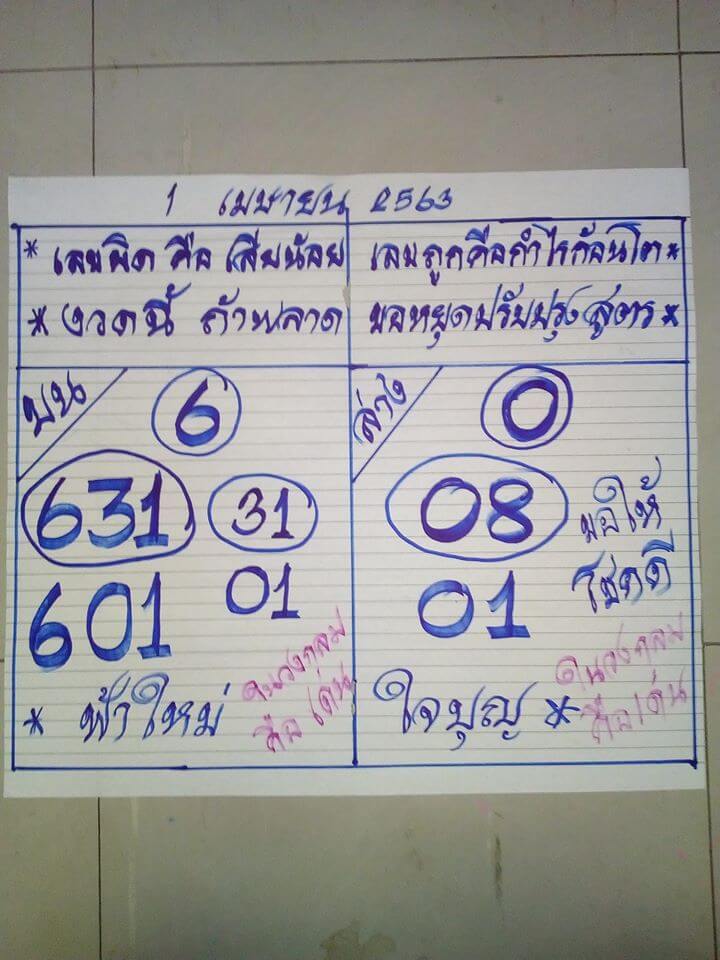 1 เมษายน 2563
* เลขผิด คือ เสียน้อย เลขถูกคือกำไรก้อนโต *
* งวดนี้ ถ้าพลาด ขอหยุดปรับปรุงสูตร *
บน 6
631 31
601 01
ล่าง 0
08 ขอให้
01 โชคดี
* ฟ้าใหม่ ใจบุญ *
วงกลม
คือ เด่น
วงกลม
คือเด่น